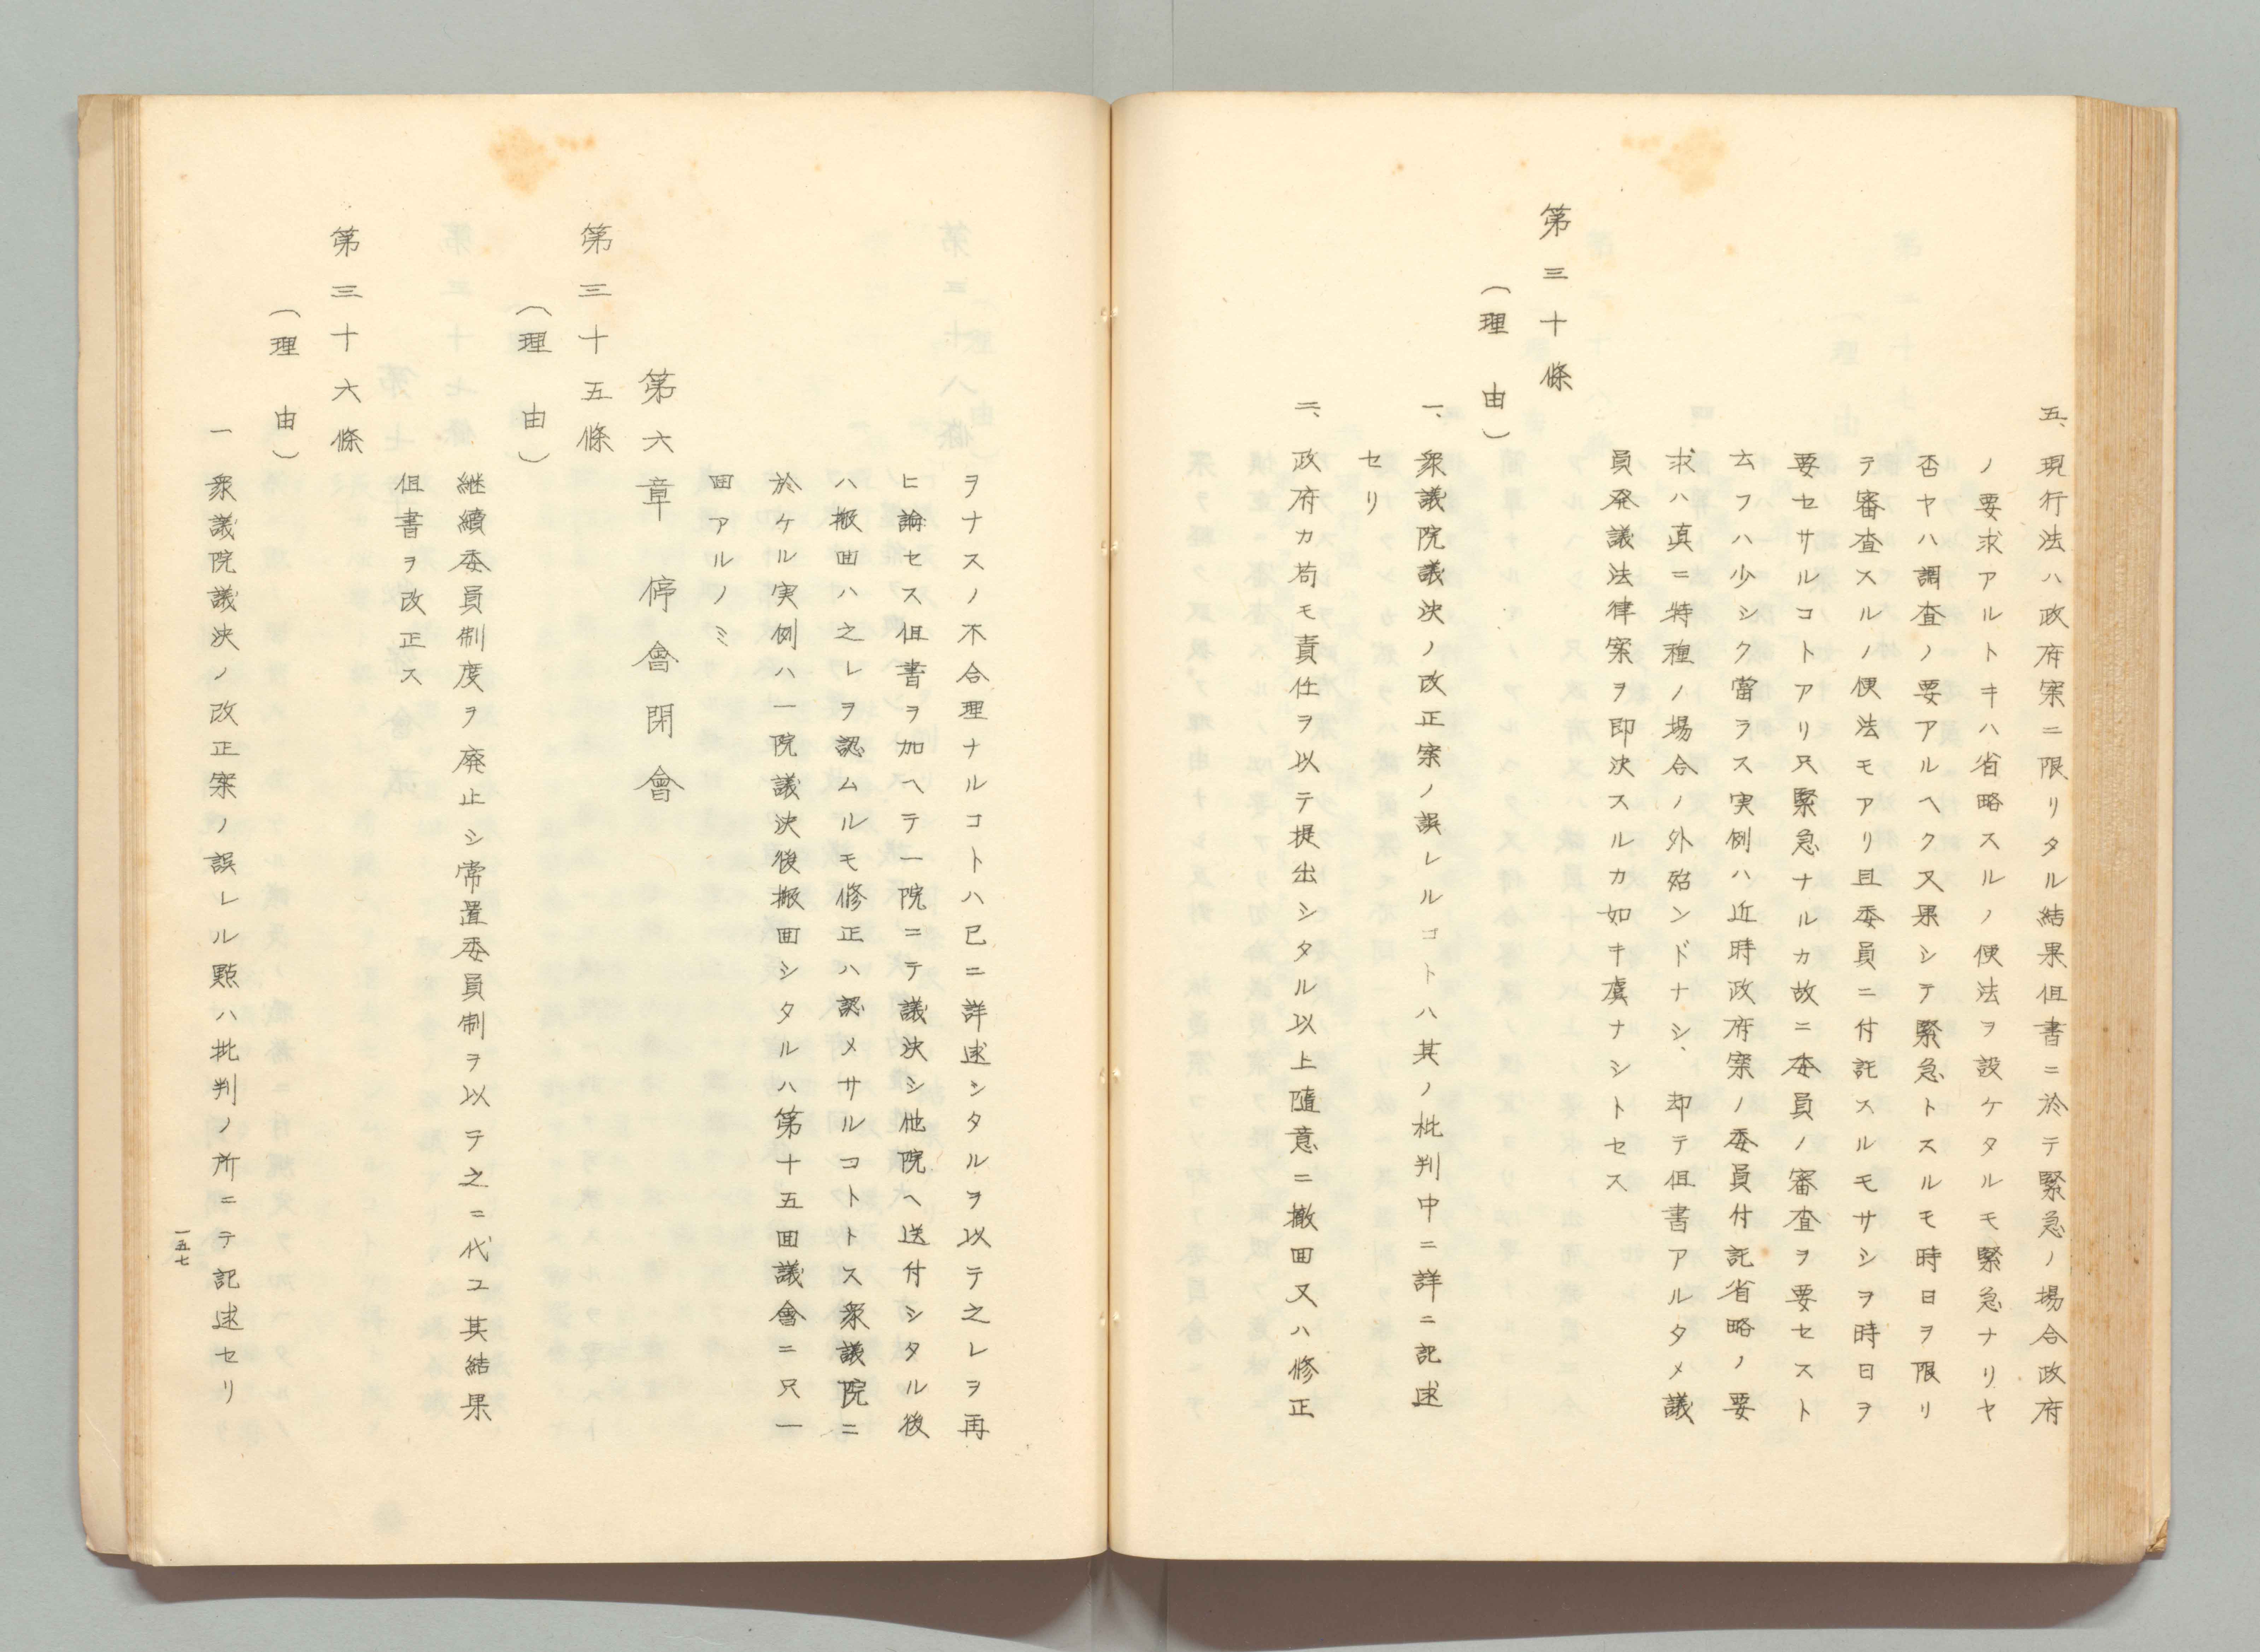 五、現行法ハ政府案ニ限リタル結果但書ニ於テ緊急ノ場合政府
ノ要求アルトキハ省略スルノ便法ヲ設ケタルモ緊急ナリヤ
否ヤハ調査ノ要アルヘク又果シテ緊急トスルモ時日ヲ限リ
テ審査スルノ便法モアリ且委員ニ付託スルモサシヲ時日ヲ
要セサルコトアリ只緊急ナルカ故ニ本員ノ審査ヲ要セスト
云フハ少シク當ラス実例ハ近時政府案ノ委員付託省略ノ要
求ハ真ニ特種ノ場合ノ外殆ンドナシ、却テ但書アルタメ議
員発議法律案ヲ即決スルカ如キ虞ナシトセス
第三十條
(理由)
一、衆議院議決ノ改正案ノ誤レルコトハ其ノ批判中ニ詳ニ記述
セリ
二、政府カ苟モ責任ヲ以テ提出シタル以上隨意ニ撤回又ハ修正
ヲナスノ不合理ナルコトハ已ニ詳述シタルヲ以テ之レヲ再
ヒ論セス但書ヲ加ヘテ一院ニテ議決シ他院ヘ送付シタル後
ハ撤回ハ之レヲ認ムルモ修正ハ認メサルコトトス衆議院ニ
於ケル実例ハ一院議決後撤回シタルハ第十五回議會ニ只一
回アルノミ
第六章 停會閉會
第三十五條
(理由)
継續委員制度ヲ廃止シ常置委員制ヲ以テ之ニ代ユ其結果
但書ヲ改正ス
第三十六條
(理由)
一 衆議院議決ノ改正案ノ誤レル點ハ批判ノ所ニテ記述セリ
一五七